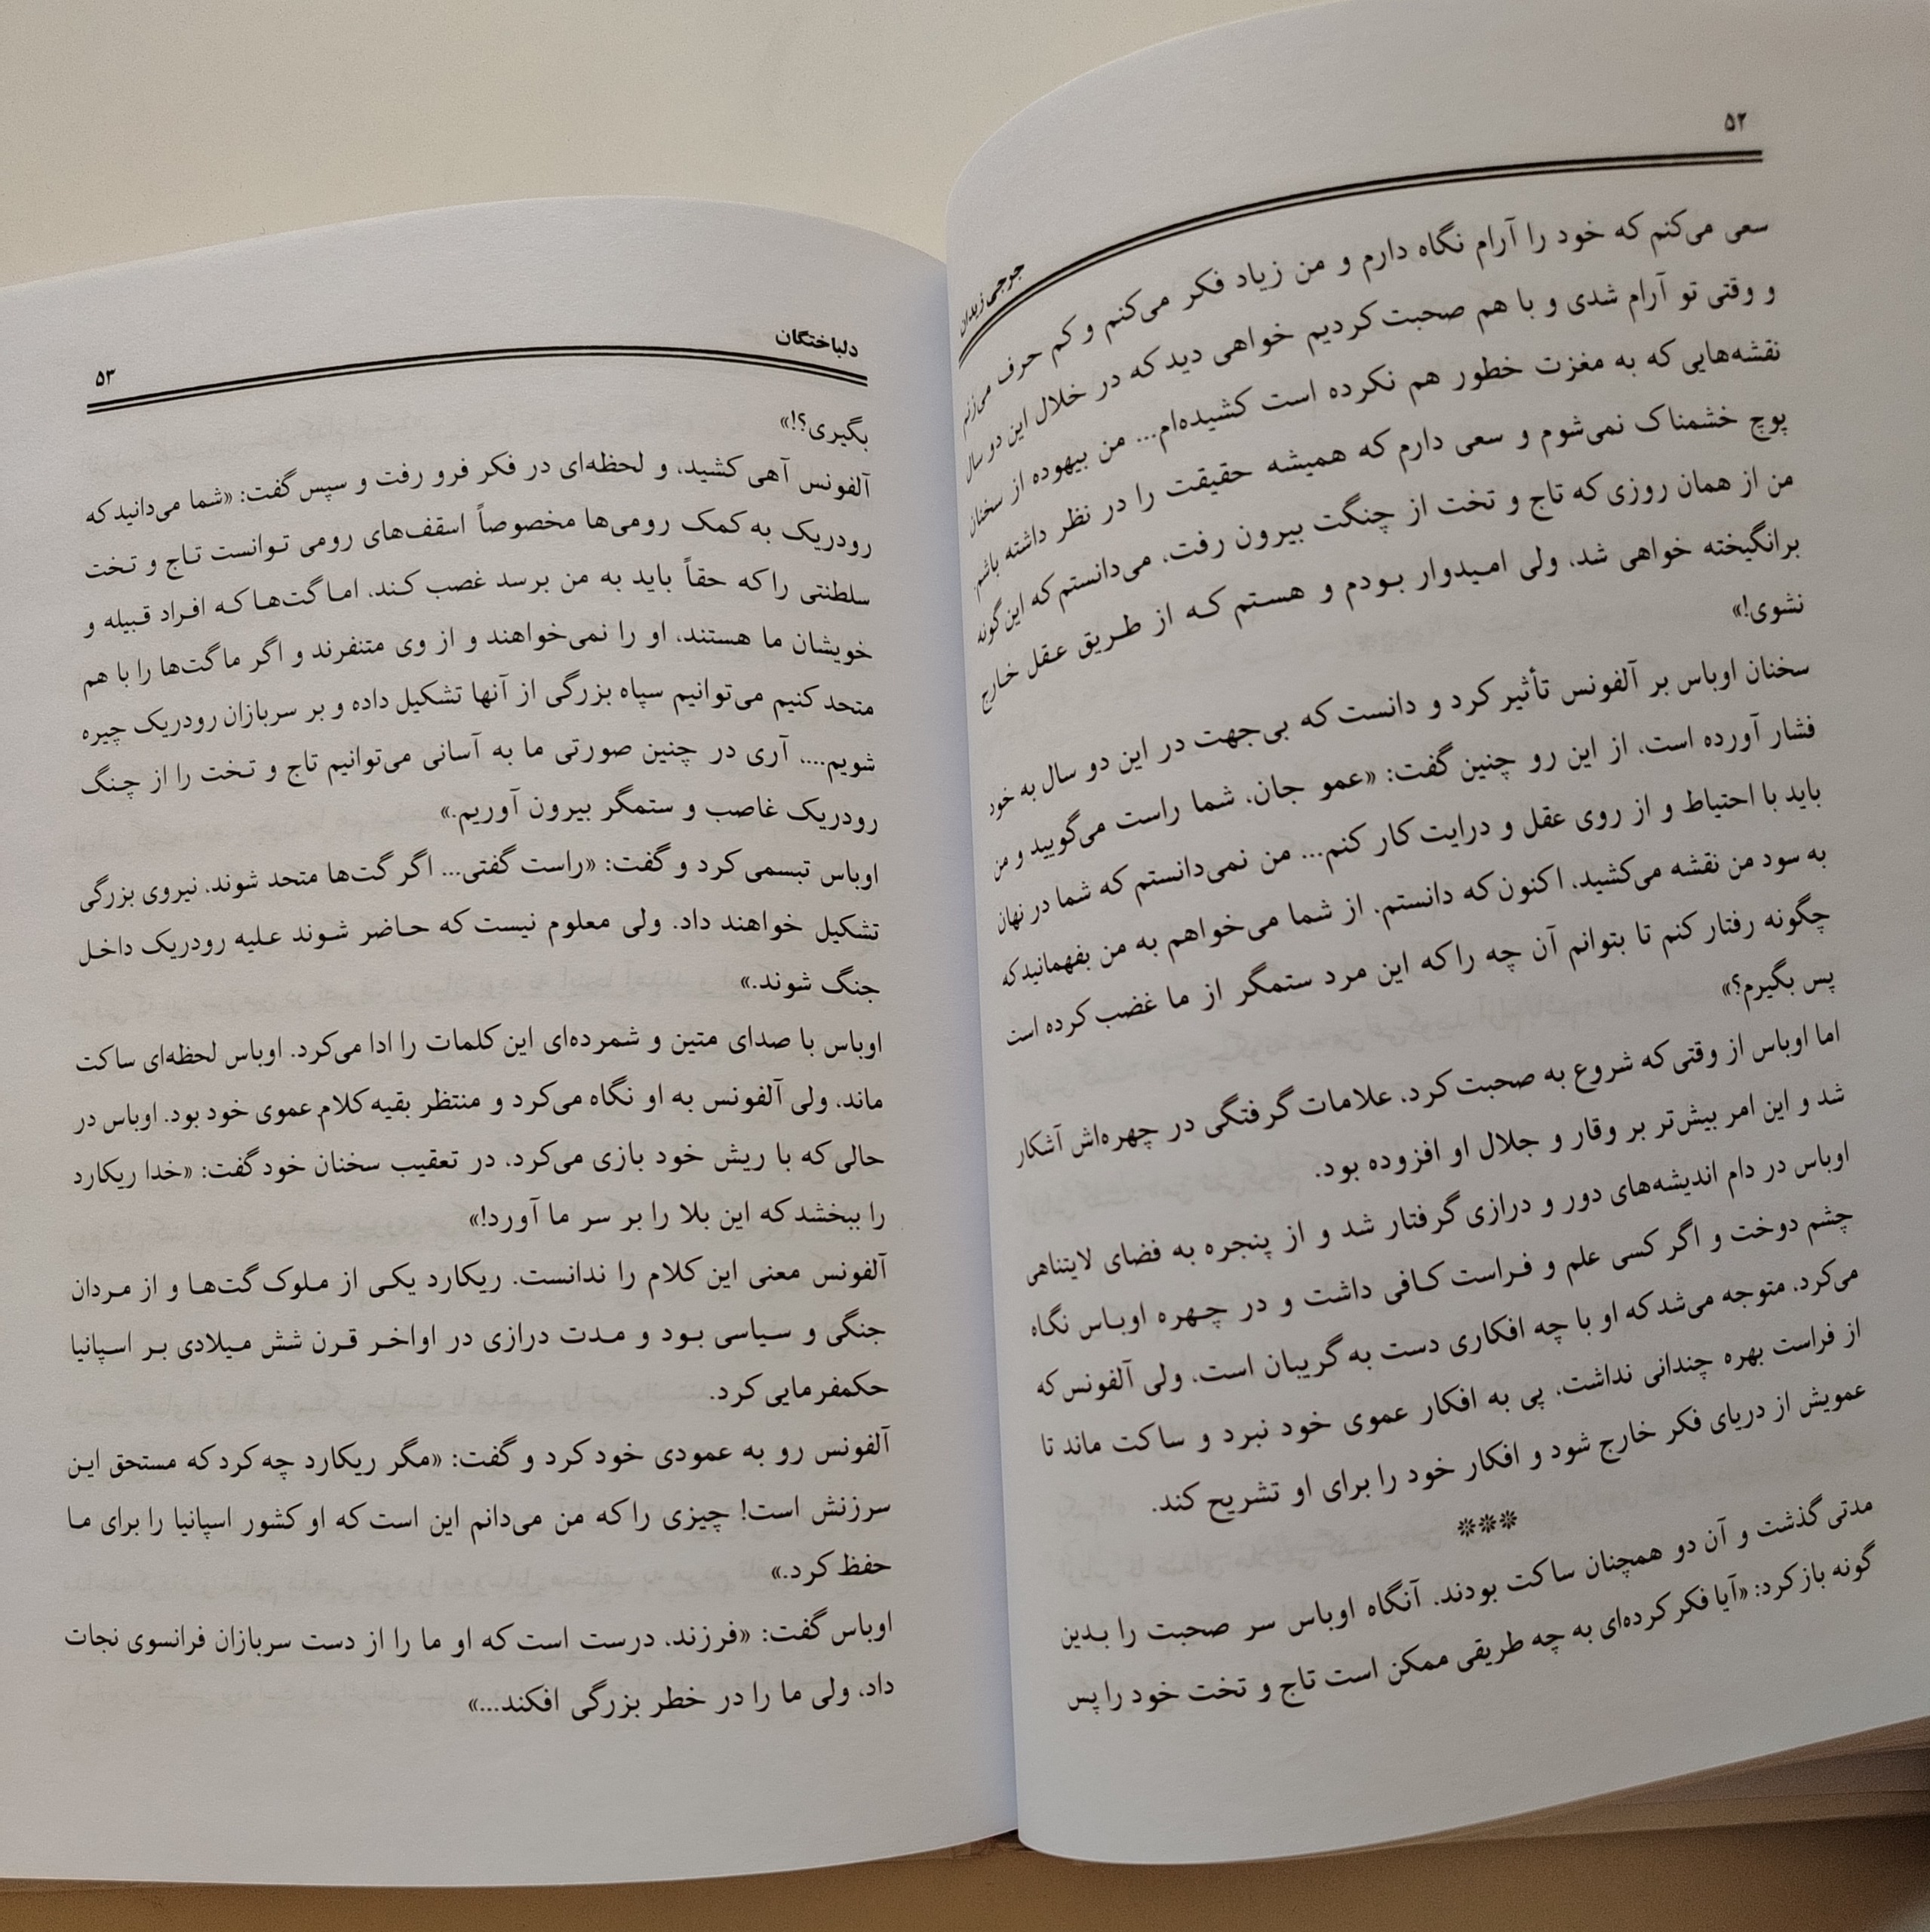 ۵۲
جرجی زیدان
سعی می‌کنم که خود را آرام نگاه دارم و من زیاد فکر می‌کنم و کم حرف می‌زنم
و وقتی تو آرام شدی و با هم صحبت کردیم خواهی دید که در خلال این دو سال
نقشه‌هایی که به مغزت خطور هم نکرده است کشیده‌ام... من بیهوده از سخنان
پوچ خشمناک نمی‌شوم و سعی دارم که همیشه حقیقت را در نظر داشته باشم.
من از همان روزی که تاج و تخت از چنگت بیرون رفت، می‌دانستم که این گونه
برانگیخته خواهی شد، ولی امیدوار بودم و هستم که از طریق عقل خارج
نشوی!»
سخنان اوباس بر آلفونس تأثیر کرد و دانست که بی‌جهت در این دو سال به خود
فشار آورده است، از این رو چنین گفت: «عمو جان، شما راست می‌گویید و من
باید با احتیاط و از روی عقل و درایت کار کنم... من نمی‌دانستم که شما در نهان
به سود من نقشه می‌کشید، اکنون که دانستم. از شما می‌خواهم به من بفهمانید که
چگونه رفتار کنم تا بتوانم آن چه را که این مرد ستمگر از ما غضب کرده است
پس بگیرم؟»
اما اوباس از وقتی که شروع به صحبت کرد، علامات گرفتگی در چهره‌اش آشکار
شد و این امر بیش‌تر بر وقار و جلال او افزوده بود.
اوباس در دام اندیشه‌های دور و درازی گرفتار شد و از پنجره به فضای لایتناهی
چشم دوخت و اگر کسی علم و فراست کافی داشت و در چهره اوباس نگاه
می‌کرد، متوجه می‌شد که او با چه افکاری دست به گریبان است، ولی آلفونس که
از فراست بهره چندانی نداشت، پی به افکار عموی خود نبرد و ساکت ماند تا
عمویش از دریای فکر خارج شود و افکار خود را برای او تشریح کند.
***
مدتی گذشت و آن دو همچنان ساکت بودند. آنگاه اوباس سر صحبت را بدین
گونه باز کرد: «آیا فکر کرده‌ای به چه طریقی ممکن است تاج و تخت خود را پس
دلباختگان
۵۳
بگیری؟!»
آلفونس آهی کشید، و لحظه‌ای در فکر فرو رفت و سپس گفت: «شما می‌دانید که
رودریک به کمک رومی‌ها مخصوصاً اسقف‌های رومی توانست تاج و تخت
سلطنتی را که حقاً باید به من برسد غصب کند، اما گت‌ها که افراد قبیله و
خویشان ما هستند، او را نمی‌خواهند و از وی متنفرند و اگر ما گت‌ها را با هم
متحد کنیم می‌توانیم سپاه بزرگی از آنها تشکیل داده و بر سربازان رودریک چیره
شویم...، آری در چنین صورتی ما به آسانی می‌توانیم تاج و تخت را از چنگ
رودریک غاصب و ستمگر بیرون آوریم.»
اوباس تبسمی کرد و گفت: «راست گفتی... اگر گت‌ها متحد شوند، نیروی بزرگی
تشکیل خواهند داد. ولی معلوم نیست که حاضر شوند علیه رودریک داخل
جنگ شوند.»
اوباس با صدای متین و شمرده‌ای این کلمات را ادا می‌کرد. اوباس لحظه‌ای ساکت
ماند، ولی آلفونس به او نگاه می‌کرد و منتظر بقیه کلام عموی خود بود. اوباس در
حالی که با ریش خود بازی می‌کرد، در تعقیب سخنان خود گفت: «خدا ریکارد
را ببخشد که این بلا را بر سر ما آورد!»
آلفونس معنی این کلام را ندانست. ریکارد یکی از ملوک گت‌ها و از مردان
جنگی و سیاسی بود و مدت درازی در اواخر قرن شش میلادی بر اسپانیا
حکمفرمایی کرد.
آلفونس رو به عمودی خود کرد و گفت: «مگر ریکارد چه کرد که مستحق این
سرزنش است! چیزی را که من می‌دانم این است که او کشور اسپانیا را برای ما
حفظ کرد.»
اوباس گفت: «فرزند، درست است که او ما را از دست سربازان فرانسوی نجات
داد، ولی ما را در خطر بزرگی افکند...»